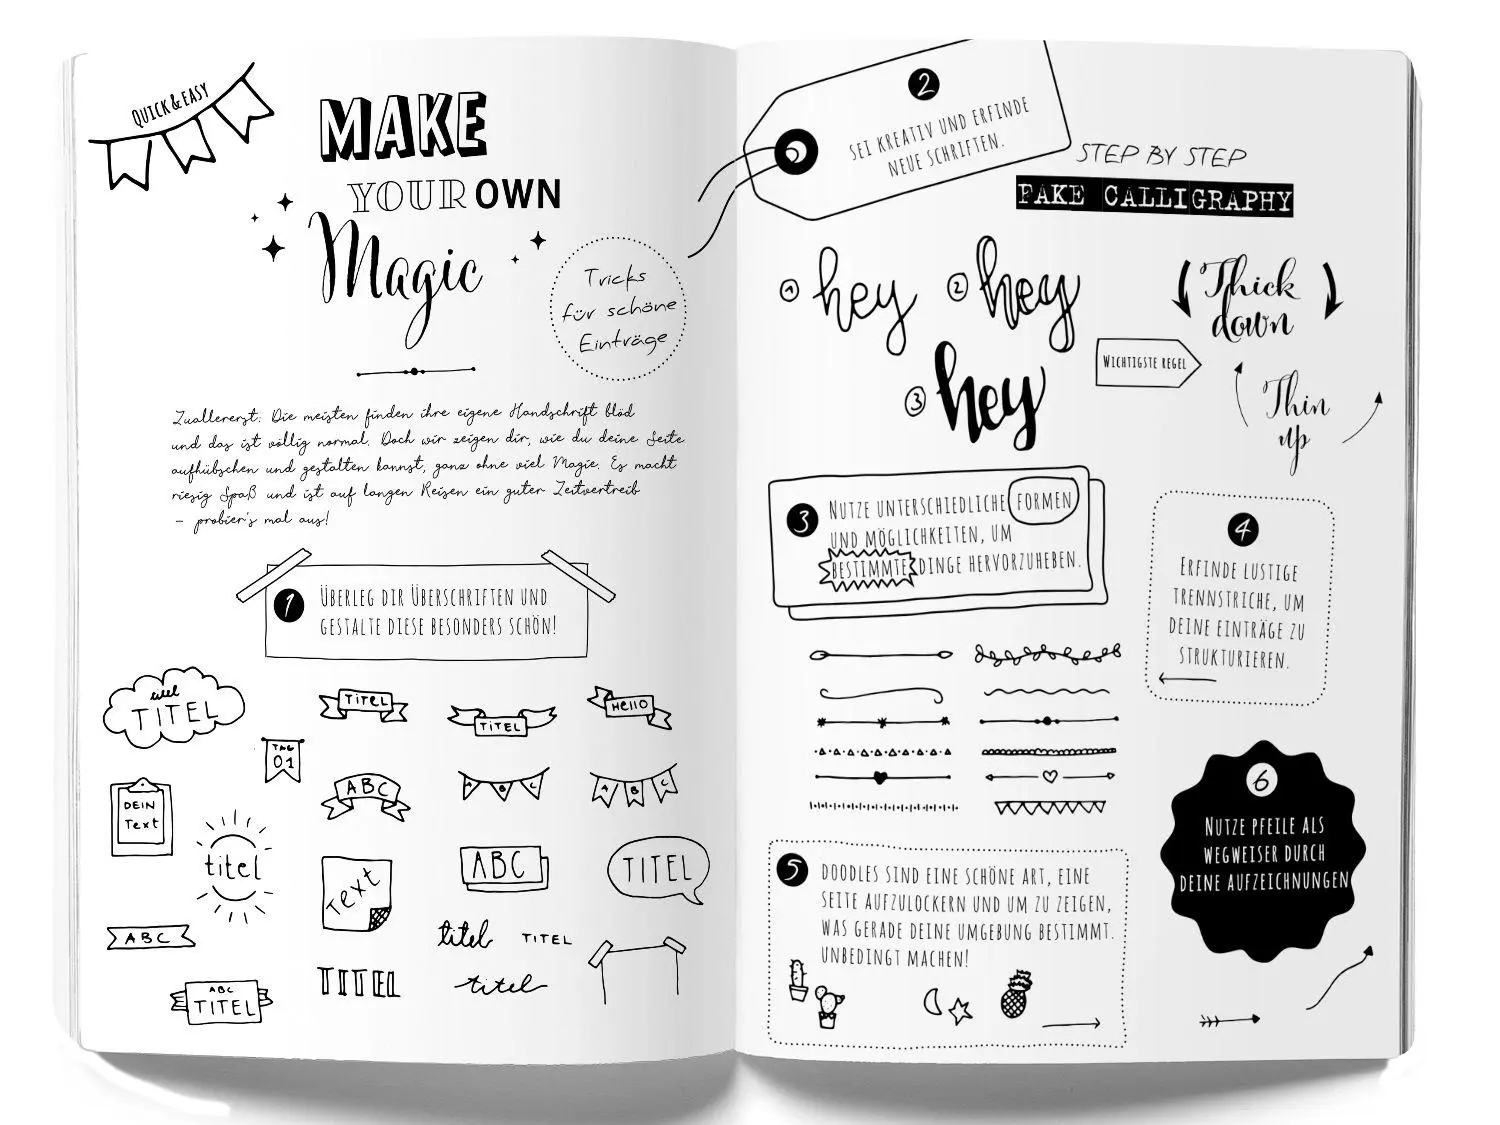 QUICK & EASY
MAKE
YOUR OWN
Magic
Tricks
für schöne
Einträge
Zuallererst: Die meisten finden ihre eigene Handschrift blöd
und das ist völlig normal. Doch wir zeigen dir, wie du deine Seite
aufhübschen und gestalten kannst, ganz ohne viel Magie. Es macht
riesig Spaß und ist auf langen Reisen ein guter Zeitvertreib
– probier's mal aus!
1
ÜBERLEG DIR ÜBERSCHRIFTEN UND
GESTALTE DIESE BESONDERS SCHÖN!
titel
TITEL
TITEL
TITEL
HELLO
TAG
01
ABC
A B C
A B C
DEIN
Text
titel
Text
ABC
TITEL
ABC
titel
TITEL
ABC
TITEL
TITEL
titel
2
SEI KREATIV UND ERFINDE
NEUE SCHRIFTEN.
STEP BY STEP
FAKE CALLIGRAPHY
1 hey
2 hey
3 hey
Thick
down
WICHTIGSTE REGEL
Thin
up
3
NUTZE UNTERSCHIEDLICHE FORMEN
UND MÖGLICHKEITEN, UM
BESTIMMTE DINGE HERVORZUHEBEN.
4
ERFINDE LUSTIGE
TRENNSTRICHE, UM
DEINE EINTRÄGE ZU
STRUKTURIEREN.
5
DOODLES SIND EINE SCHÖNE ART, EINE
SEITE AUFZULOCKERN UND UM ZU ZEIGEN,
WAS GERADE DEINE UMGEBUNG BESTIMMT.
UNBEDINGT MACHEN!
6
NUTZE PFEILE ALS
WEGWEISER DURCH
DEINE AUFZEICHNUNGEN